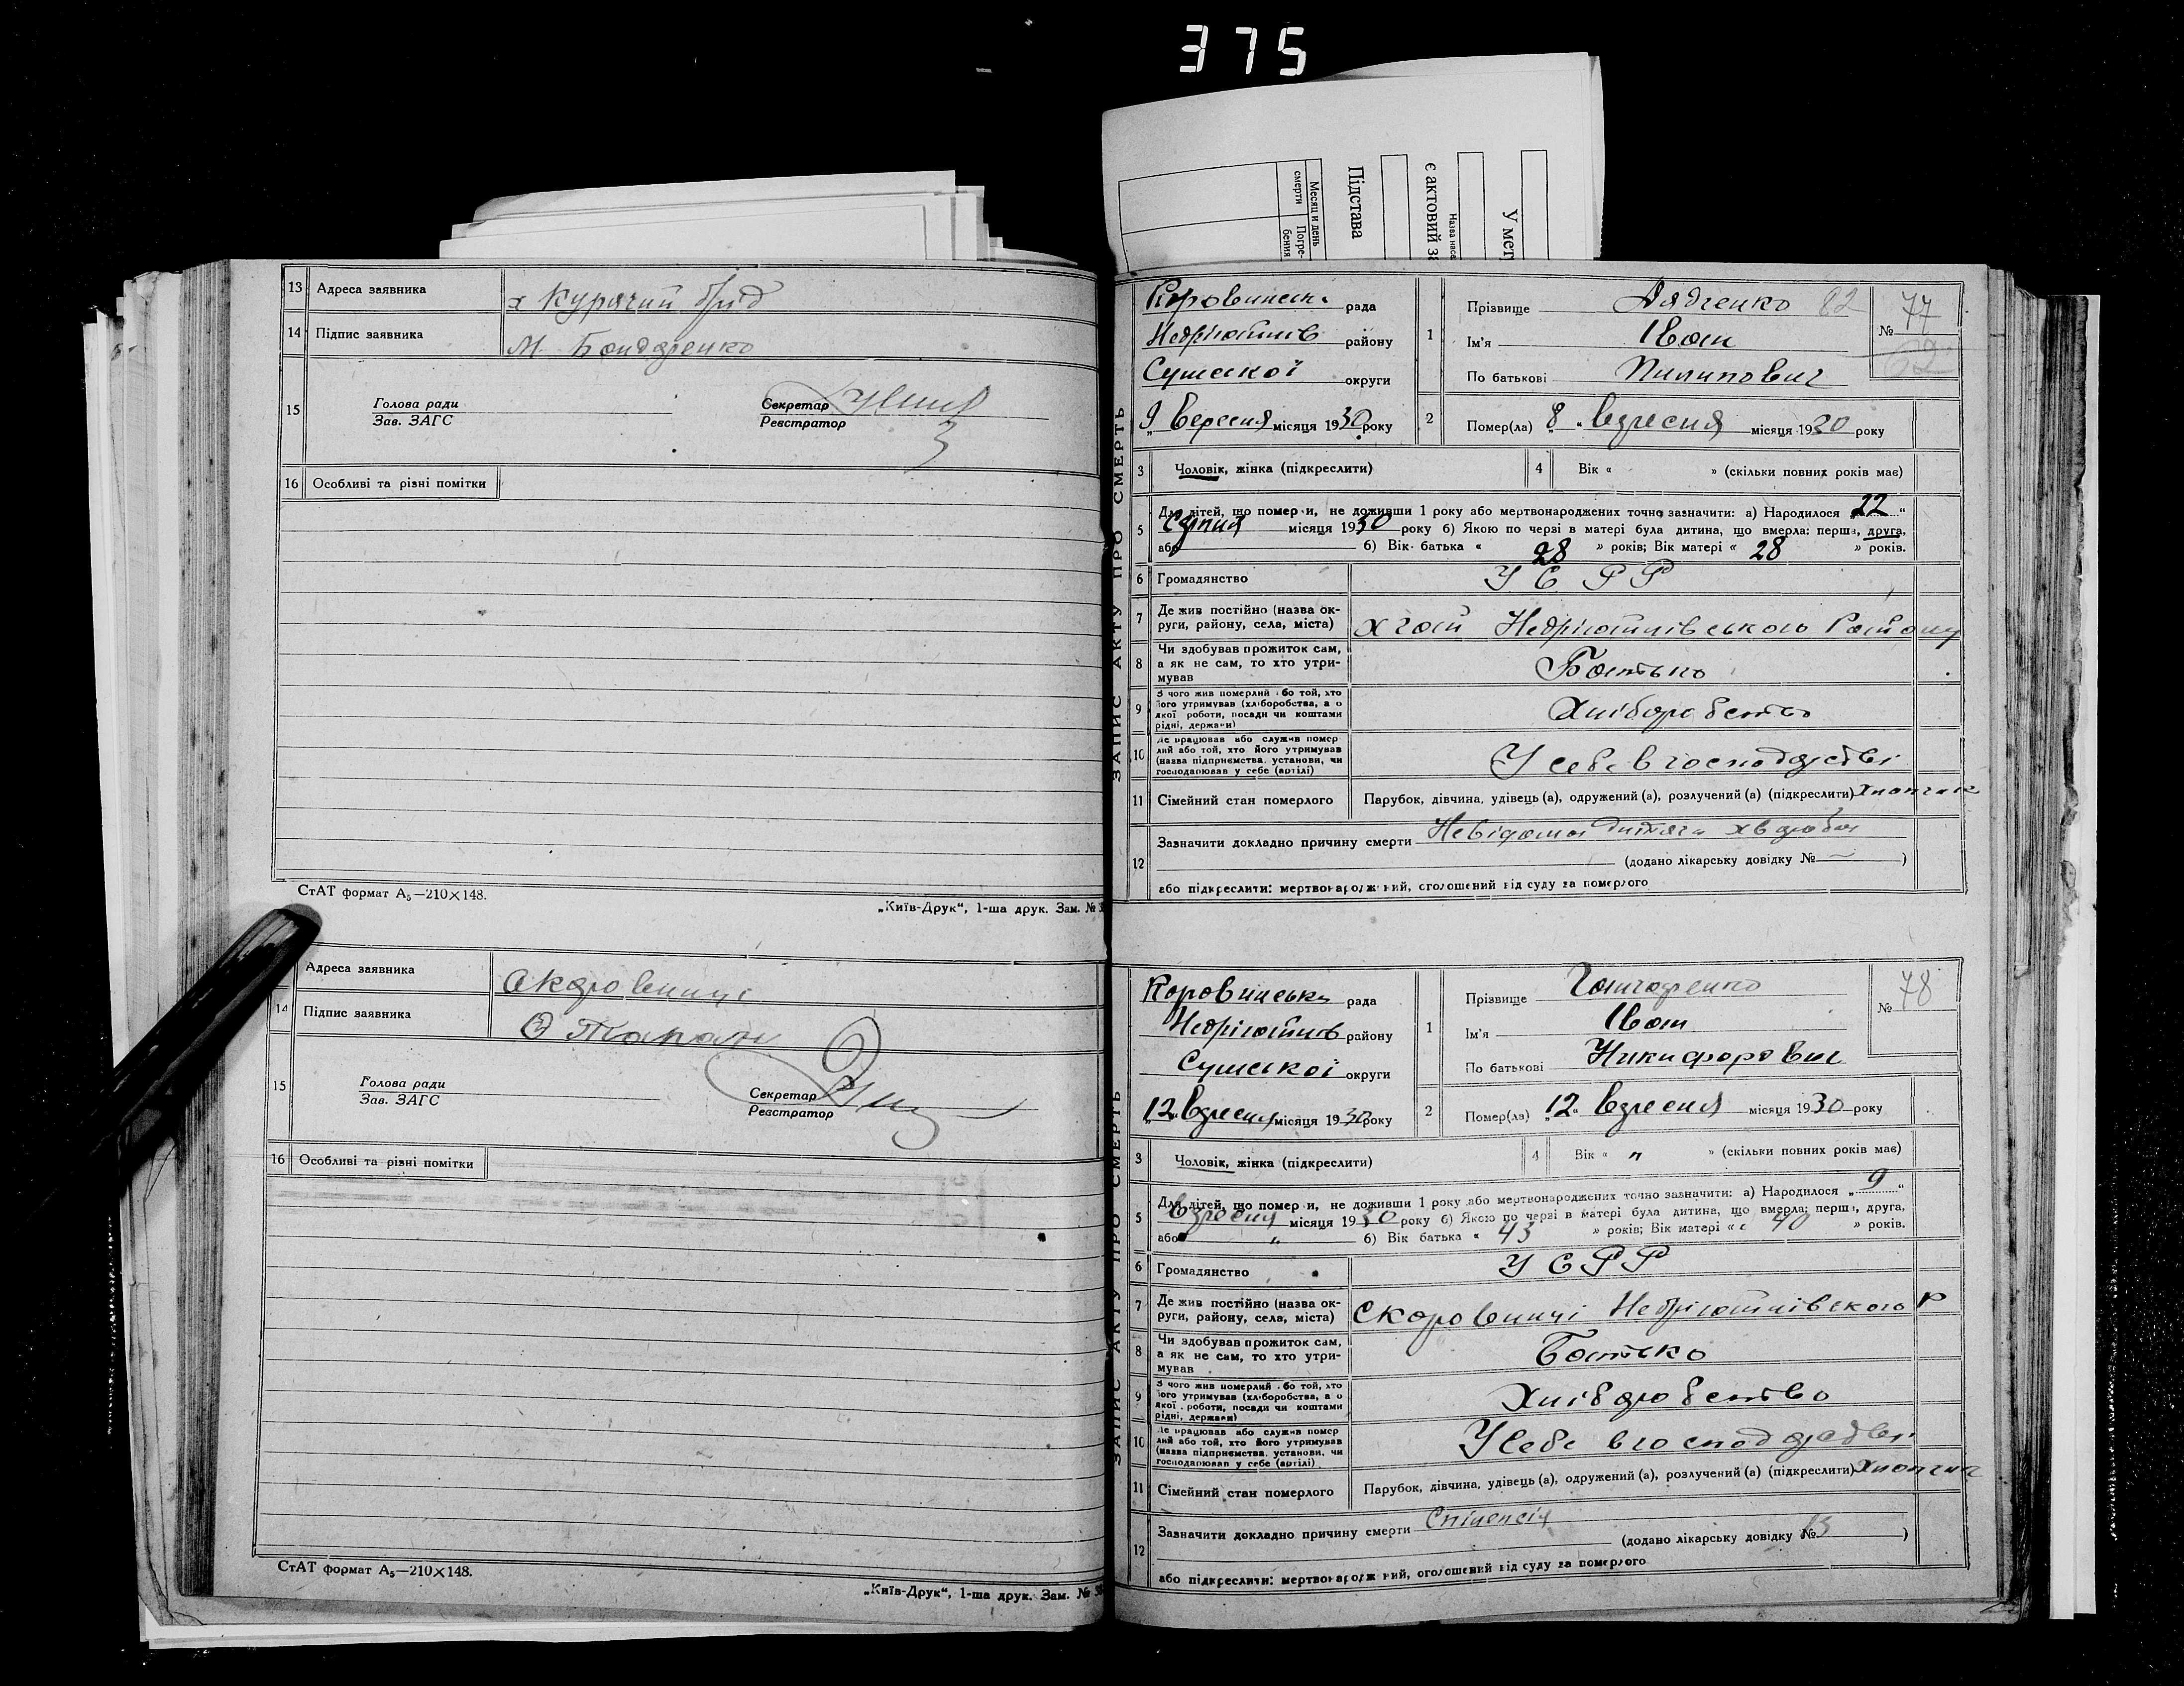 375
Месяц и день
смерти
Погре-
бения
Підстава
є актовий
Назва насе
У мет
13 Адреса заявника х Курячий брід
14 Підпис заявника М. Бондаренко
15 Голова ради
Зав. ЗАГС
Секретар
Реєстратор
16 Особливі та різні помітки
СтАТ формат А₅—210×148.
„Київ-Друк“, 1-ша друк. Зам. №
Адреса заявника
14 Підпис заявника
15 Голова ради
Зав. ЗАГС
Секретар
Реєстратор
16 Особливі та різні помітки
СтАТ формат А₅—210×148.
„Київ-Друк“, 1-ша друк. Зам. №
ЗАПИС АКТУ ПРО СМЕРТЬ
Коровинська рада
Недригайлів району
Сумської округи
„9 Вересня місяця 1930 року
1 Прізвище Дядченко 82
Ім'я Іван
По батькові Пилипович
№ 77
2 Помер(ла) „8“ вересня місяця 1930 року
3 Чоловік, жінка (підкреслити)
4 Вік « » (скільки повних років має)
5 Для дітей, що померли, не доживши 1 року або мертвонароджених точно зазначити: а) Народилося „22“
Серпня місяця 1930 року б) Якою по черзі в матері була дитина, що вмерла: перша, друга,
або 6) Вік батька « 28 » років; Вік матері « 28 » років.
6 Громадянство УСРР
7 Де жив постійно (назва ок-
руги, району, села, міста) Недригайлівського Району
8 Чи здобував прожиток сам,
а як не сам, то хто утри-
мував Батько
9 З чого жив померлий або той, хто
його утримував (хліборобства, а о
якої роботи, посади чи коштами
рідні, держави) Хліборобство
10 Де працював або служив помер
лий або той, хто його утримував
(назва підприємства, установи, чи
господарював у себе (артілі) У себе в господарстві
11 Сімейний стан померлого Парубок, дівчина, удівець (а), одружений (а), розлучений (а) (підкреслити) Хлопчик
12 Зазначити докладно причину смерти Невідома дитяча хвороба
(додано лікарську довідку № — )
або підкреслити: мертвонароджений, оголошений від суду за померлого
ЗАПИС АКТУ ПРО СМЕРТЬ
Коровинська рада
Недригайлів району
Сумської округи
„12“ вересня місяця 1930 року
1 Прізвище Гончаренко
Ім'я Іван
По батькові Никифорович
№ 78
2 Помер(ла) „12“ вересня місяця 1930 року
3 Чоловік, жінка (підкреслити)
4 Вік « „ » (скільки повних років має)
5 Для дітей, що померли, не доживши 1 року або мертвонароджених точно зазначити: а) Народилося „9“
вересня місяця 1930 року б) Якою по черзі в матері була дитина, що вмерла: перша, друга,
або „ 6) Вік батька « 43 » років; Вік матері « 40 » років.
6 Громадянство УСРР
7 Де жив постійно (назва ок-
руги, району, села, міста) С Коровинці Недригайлівского Р
8 Чи здобував прожиток сам,
а як не сам, то хто утри-
мував Батько
9 З чого жив померлий або той, хто
його утримував (хліборобства, а о
якої роботи, посади чи коштами
рідні, держави) Хліборобство
10 Де працював або служив помер
лий або той, хто його утримував
(назва підприємства, установи, чи
господарював у себе (артілі) У себе в господарстві
11 Сімейний стан померлого Парубок, дівчина, удівець (а), одружений (а), розлучений (а) (підкреслити) Хлопчик
12 Зазначити докладно причину смерти
(додано лікарську довідку № 13 )
або підкреслити: мертвонароджений, оголошений від суду за померлого